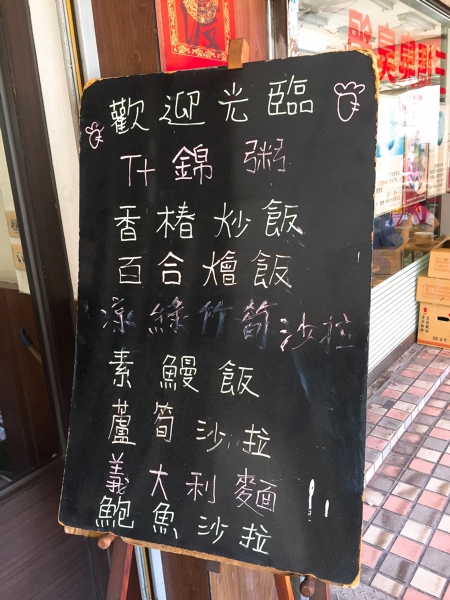 歡迎光臨
什錦粥
香椿炒飯
百合燴飯
涼綠竹筍沙拉
素鰻飯
蘆筍沙拉
義大利麵!!
鮑魚沙拉